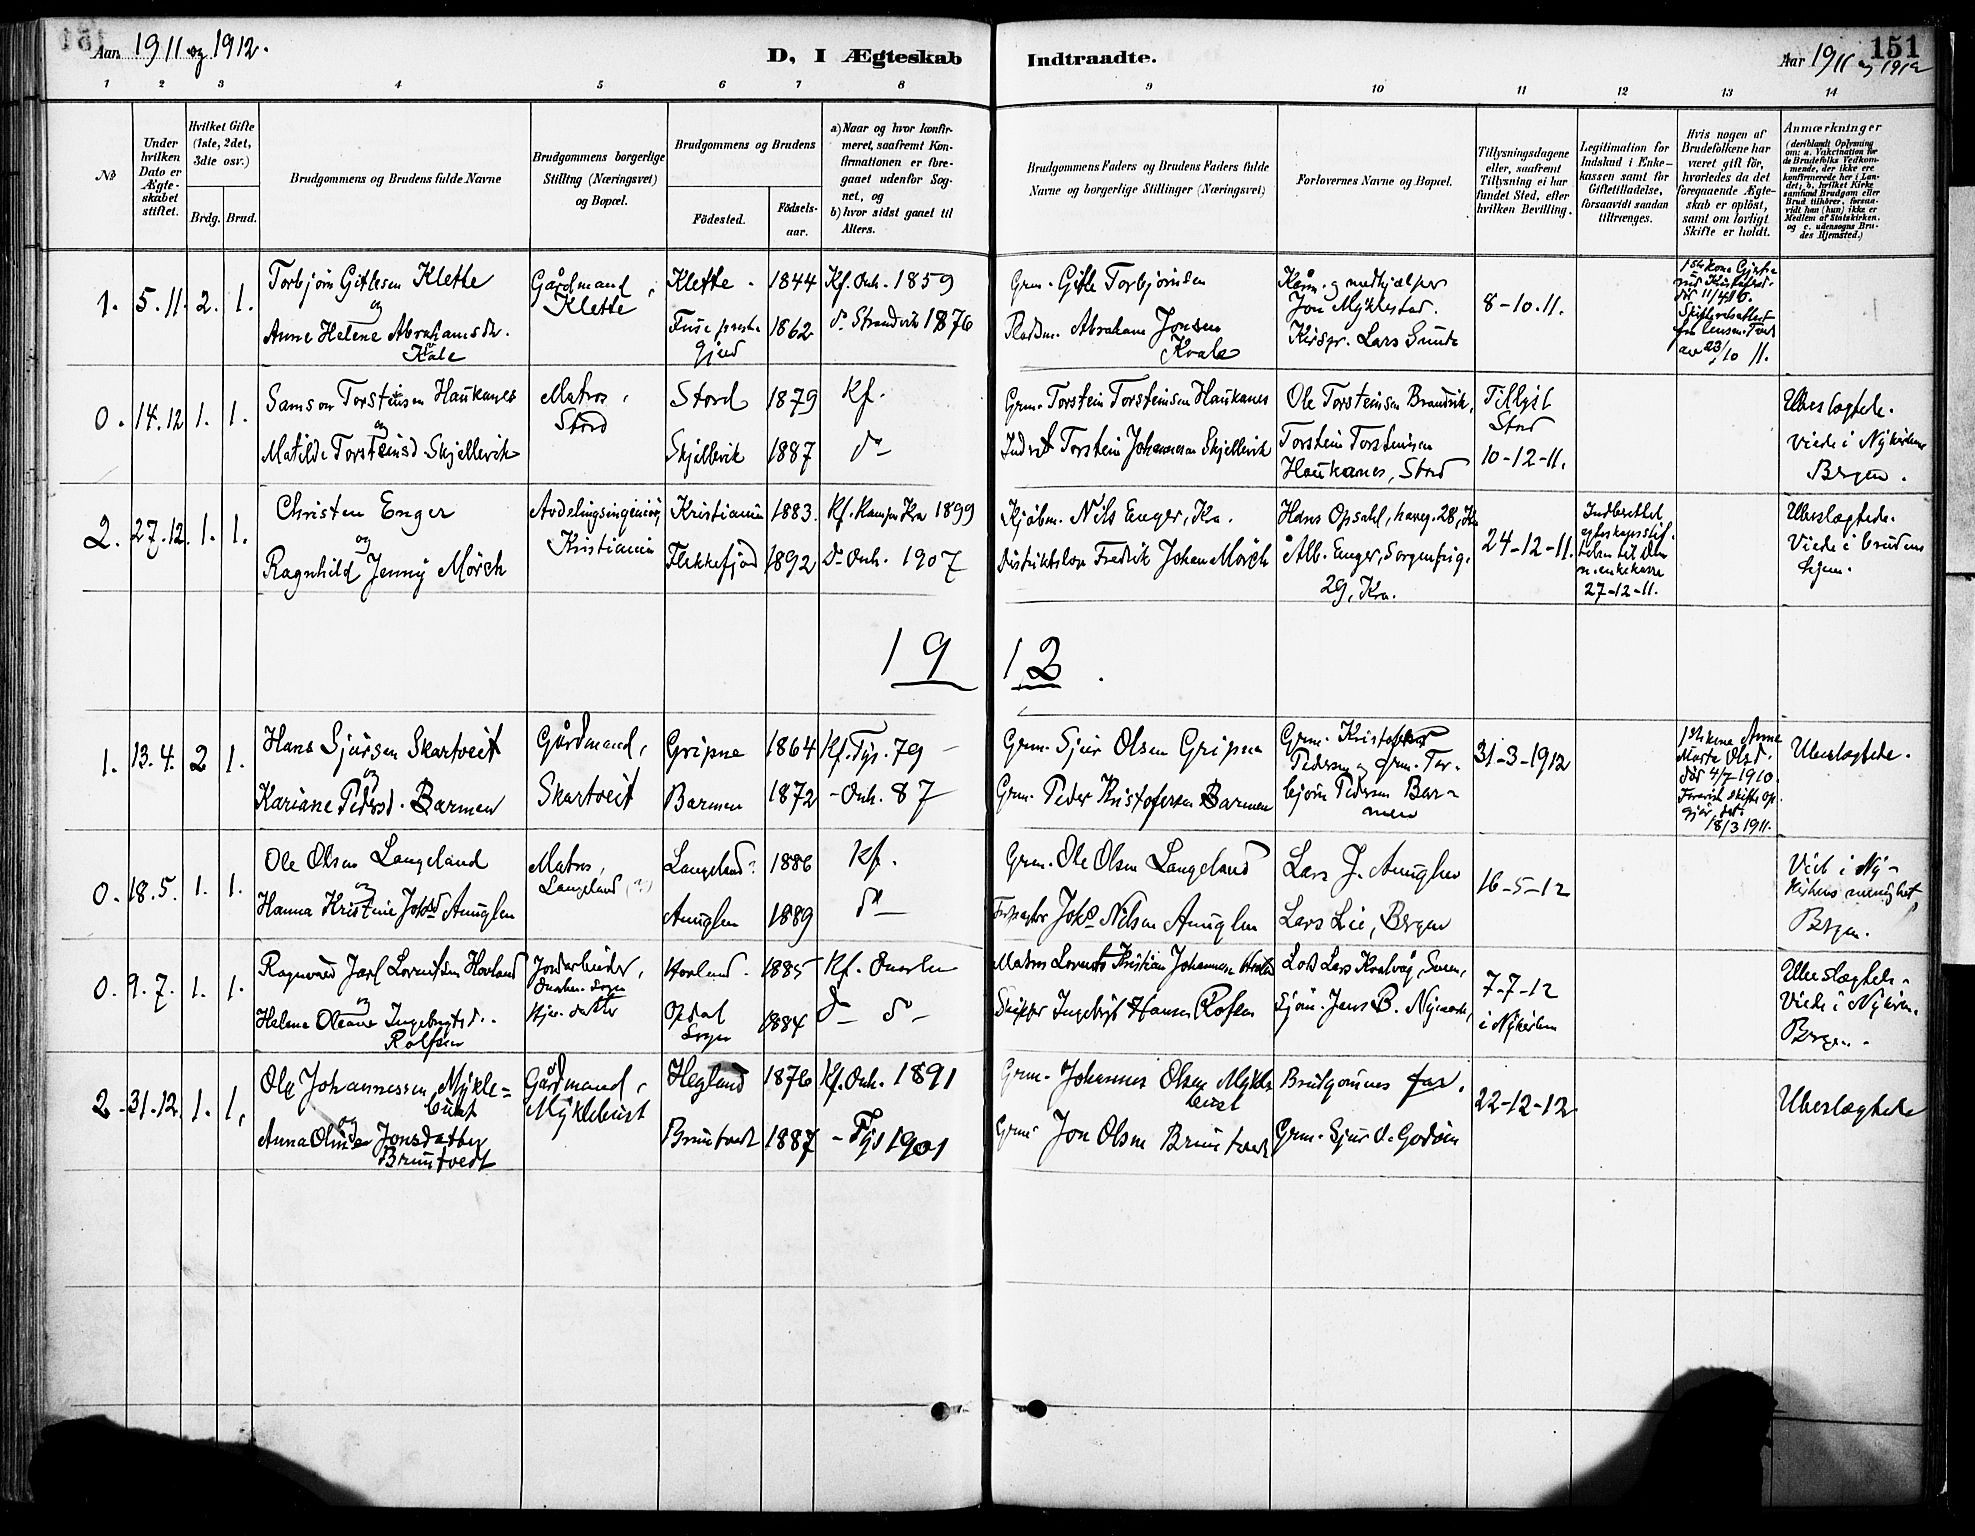 Aar 1911 og 1912.
D, I Ægteskab Indtraadte.
Aar 1911 og 1912
151
1 2 3 4 5 6 7 8 9 10 11 12 13 14
No
Under hvilken Dato er Ægteskabet stiftet.
Hvilket Gifte (1ste, 2det, 3die osv.)
Brdg. Brud.
Brudgommens og Brudens fulde Navne
Brudgommens borgerlige Stilling (Næringsvei) og Bopæl.
Brudgommens og Brudens
Fødested.
Fødselsaar.
a) Naar og hvor konfirmeret, saafremt Konfirmationen er foregaaet udenfor Sognet, og
b) hvor sidst gaaet til Alters.
Brudgommens Faders og Brudens Faders fulde Navne og borgerlige Stillinger (Næringsvei)
Forlovernes Navne og Bopæl.
Tillysningsdagene eller, saafremt Tillysning ei har fundet Sted, efter hvilken Bevilling.
Legitimation for Indskud i Enkekassen samt for Giftetilladelse, forsaavidt saadan tiltrænges.
Hvis nogen af Brudefolkene har været gift før, hvorledes da det foregaaende Ægteskab er opløst, samt om lovligt Skifte er holdt.
Anmærkninger (deriblandt Oplysning om: a. Vakcination for de Brudefolks Vedkommende, der ikke ere konfirmerede her i Landet; b. hvilket Kirkesamfund Brudgom eller Brud tilhører, forsaavidt han (hun) ikke er Medlem af Statskirken, og c. udensogns Brudes Hjemsted.)
1. 5.11. 2. 1.
Torbjørn Gitlesen Klette
og
Anne Helene Abrahamsdr.
Gårdmand,
Klette
Klette 1844 Kf. Onh. 1859
Fuse præstegjeld 1862 do Strandvik 1876
Grm. Gitle Torbjørnsen
Pladsm. Abraham Jonsen
Kvale
Jon Myklestad.
Kirspr. Lars Sunde
8-10-11.
0. 14.12 1. 1.
Samson Torsteinsen Haukanes
og
Matilde Torsteinsd Skjellevik
Matros,
Stord
Stord 1879 Kf.
Skjellevik 1887 do
Grm. Torstein Torsteinsen Haukanes
Torstein Johannesen Skjellevik
Ole Torsteinsen Brandvik,
Torstein Torsteinsen
Haukanes, Stord
Tillyst
Stord
10-12-11.
Ubeslægtede.
Viede i Nykirken
Bergen.
2. 27.12. 1. 1.
Christen Enger
og
Ragnhild Jenny Mörch
Avdelingsingeniør,
Kristiania
Kristiania 1883. Kf. Kampen Kra 1899
Flekkefjord 1892 do Onh. 1907
Kjøbm. Nils Enger, Kra.
Distriktslæge Fredrik Johan Mörch
Hans Opsahl, haveg. 28, Kra
Alb. Enger, Sorgenfrig.
29, Kra.
24-12-11.
27-12-11.
Ubeslægtede.
Viede i brudens
hjem.
1912.
1. 13.4. 2 1.
Hans Sjursen Skartveit
og
Kariane Pedersd. Barmen
Gårdmand,
Skartveit
Gripne 1864 Kf. Tys. 79
Barmen 1872 - Onh. 87
Grm. Sjur Olsen Gripne
Grm. Peder Kristofersen Barmen
Grm. Kristoffer
Pedersen og Grm. Torbjørn
Pedersen Barmen
31-3-1912
1ste kone Anne
Marta Olsd.
død 4/7 1910.
18/3 1911.
Ubeslægtede.
0. 18.5. 1. 1.
Ole Olsen Langeland
og
Hanna Kristine Johsd Anuglen
Matros,
Langeland (?)
Langeland? 1886 Kf.
Anuglen 1889 do
Grm. Ole Olsen Langeland
Johs Nilsen Anuglen
Lars J. Anuglen
Lars Lie, Bergen
16-5-12
Viet i Nykirkens
menighet,
Bergen.
0. 9.7. 1. 1.
Ragnvald Jarl Lorentsen Hovland
og
Helene Oleane Ingebrigtsd.
Rolfsen
Jordarbeider,
Hovland. 1885 Kf. Onarheim
Opdal
Sogn 1884 do do
Matros Lorents Kristian Johannesen Hovland
Skipper Ingebrigt Hansen Rolfsen
Lods Lars Kvalvåg,
Jens B.
7-7-12
i Nykirken
Ubeslægtede.
Viede i Nykirken.
Bergen.
2. 31.12. 1. 1.
Ole Johannessen Myklebust
og
Anna Jonsdatter
Bruntvedt
Gårdmand,
Myklebust
Hegland 1876 Kf. Onh. 1891
Bruntvedt 1887 - Tys 1901
Grm. Johannes Olsen Myklebust
Grm. Jon Olsen Bruntvedt
Brudgommens far.
Grm. Sjur O. Godøen
22-12-12
Ubeslægtede